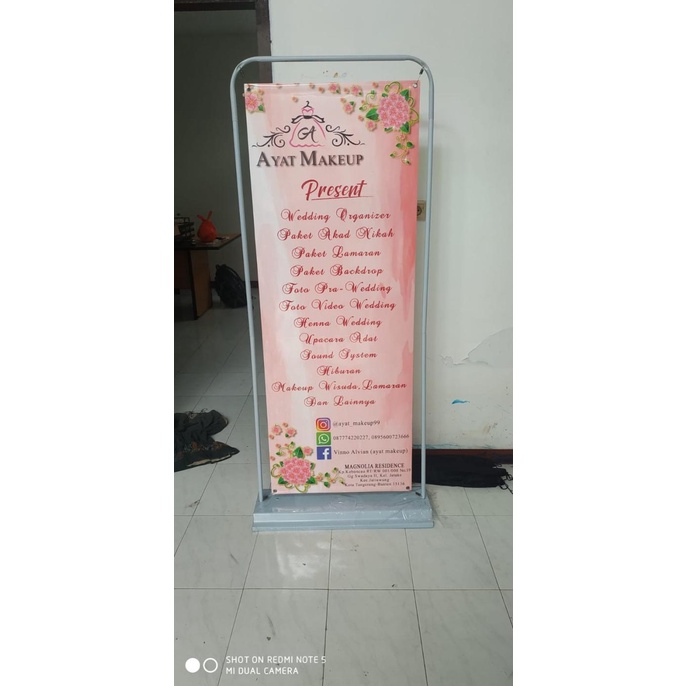 A
AYAT MAKEUP
Present
Wedding Organizer
Paket Akad Nikah
Paket Lamaran
Paket Backdrop
Foto Pra-Wedding
Foto Video Wedding
Henna Wedding
Upacara Adat
Sound System
Hiburan
Makeup Wisuda, Lamaran
Dan Lainnya
@ayat_makeup99
087774220227, 0895600723666
Visno Alvian (ayat makeup)
MAGNOLIA RESIDENCE
SHOT ON REDMI NOTE 5
MI DUAL CAMERA